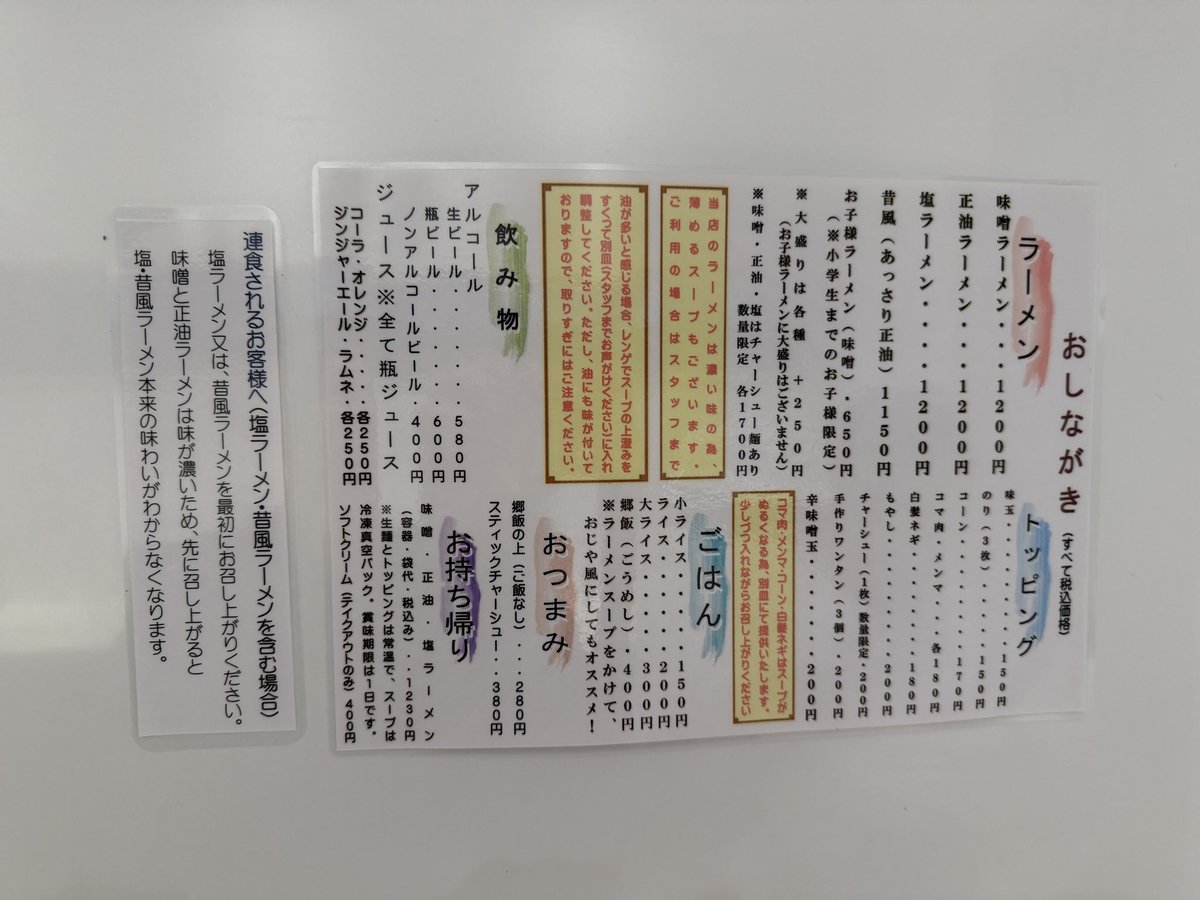 おしながき(すべて税込価格)
ラーメン
味噌ラーメン・・・1200円
正油ラーメン・・・1200円
塩ラーメン・・・・1200円
昔風(あっさり正油)1150円
お子様ラーメン(味噌)・650円
(※小学生までのお子様限定)
※大盛りは各種 +250円
(お子様ラーメンに大盛りはございません)
※味噌・正油・塩はチャーシュー麺あり
数量限定 各1700円
当店のラーメンは濃い味の為、
薄めるスープもございます。
ご利用の場合はスタッフまで
油が多いと感じる場合、レンゲでスープの上澄みを
すくって別皿(スタッフまでお声がけください)に入れ
調整してください。ただし、油にも味が付いて
おりますので、取りすぎにはご注意ください。
飲み物
アルコール
生ビール・・・・・・580円
瓶ビール・・・・・・600円
ノンアルコールビール・400円
ジュース※全て瓶ジュース
コーラ・オレンジ・・・・各250円
ジンジャーエール・ラムネ・各250円
トッピング
味玉・・・・・・・・・150円
のり(3枚)・・・・・・150円
コーン・・・・・・・・170円
コマ肉・メンマ・・・各180円
白髪ネギ・・・・・・・180円
もやし・・・・・・・・200円
チャーシュー(1枚)数量限定・200円
手作りワンタン(3個)・・200円
辛味噌玉・・・・・・・200円
コマ肉・メンマ・コーン・白髪ネギはスープが
ぬるくなる為、別皿にて提供いたします。
少しづつ入れながらお召し上がりください
ごはん
小ライス・・・・・150円
ライス・・・・・・200円
大ライス・・・・・300円
郷飯(ごうめし)・・400円
※ラーメンスープをかけて、
おじや風にしてもオススメ!
おつまみ
郷飯の上(ご飯なし)・・・280円
スティックチャーシュー・・380円
お持ち帰り
味噌・正油・塩ラーメン
(容器・袋代・税込み)・・・1230円
※生麺とトッピングは常温で、スープは
冷凍真空パック。賞味期限は1日です。
ソフトクリーム(テイクアウトのみ)400円
連食されるお客様へ(塩ラーメン・昔風ラーメンを含む場合)
塩ラーメン又は、昔風ラーメンを最初にお召し上がりください。
味噌と正油ラーメンは味が濃いため、先に召し上がると
塩・昔風ラーメン本来の味わいがわからなくなります。